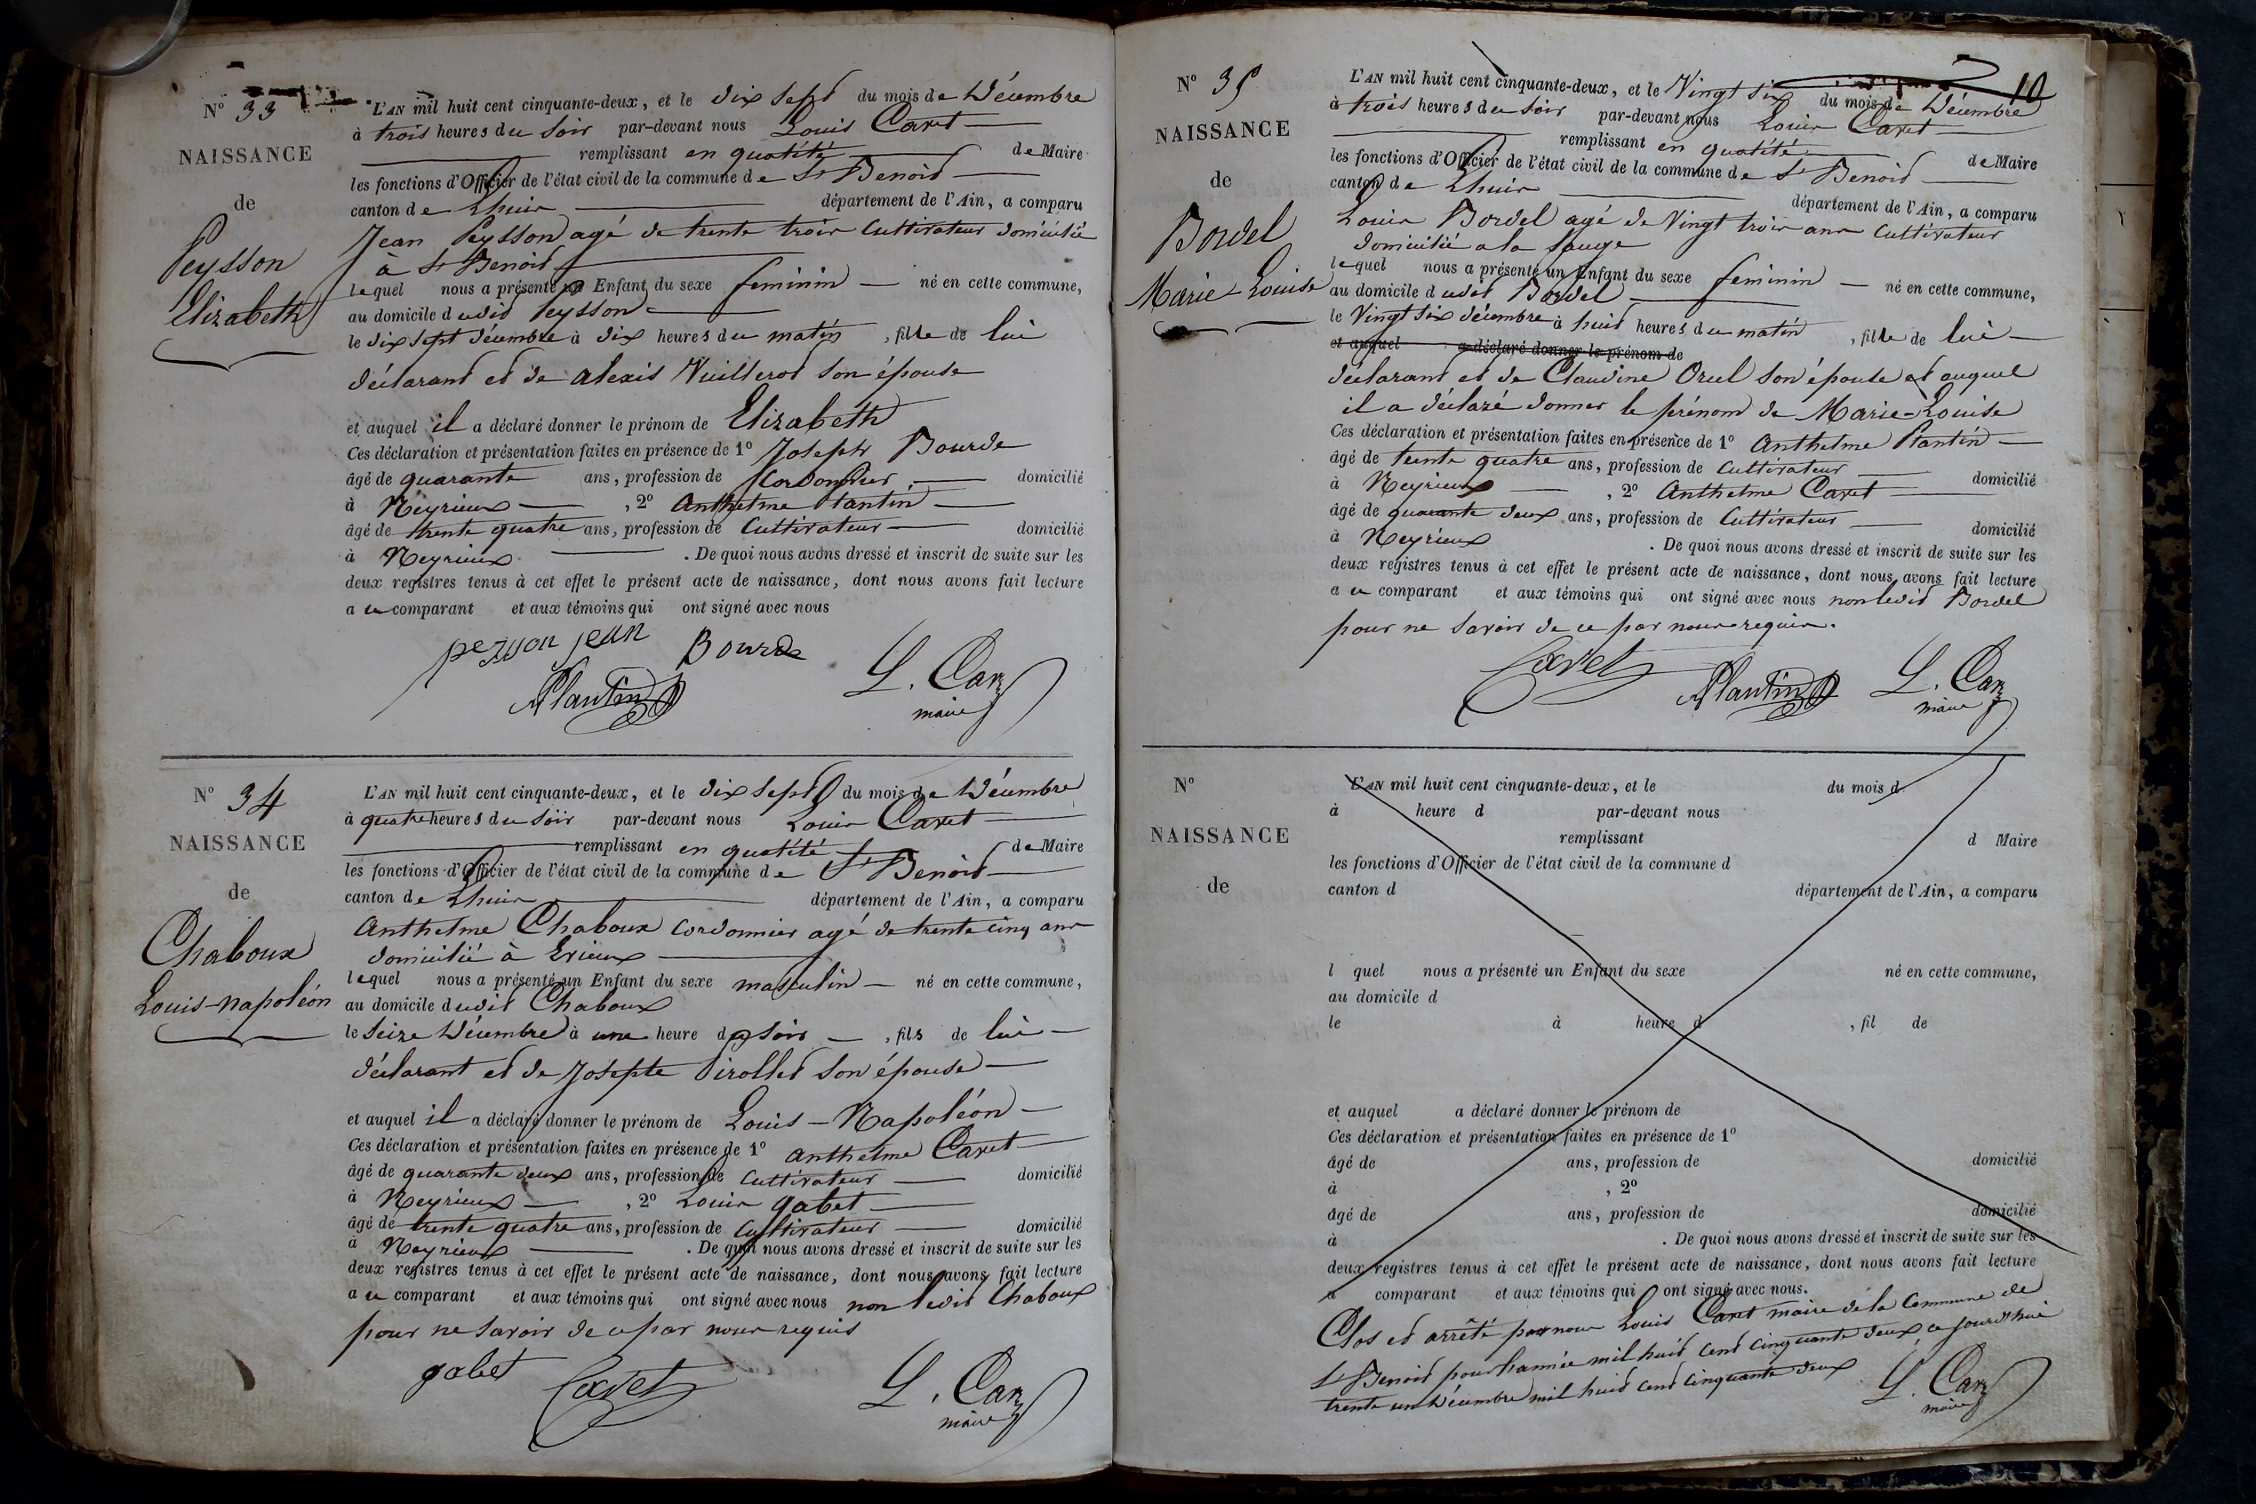 N° 33
NAISSANCE
de
Peysson
Elizabeth
L'AN mil huit cent cinquante-deux, et le dix sept du mois de Décembre
à trois heures du soir par-devant nous Louis Caret
remplissant en qualité de Maire
les fonctions d'Officier de l'état civil de la commune de St Benoid
canton de Lhuis département de l'Ain, a comparu
Jean Peysson agé de trente trois Cultivateur domicilié
à St Benoid
lequel nous a présenté un Enfant du sexe feminin né en cette commune,
au domicile dudid Peysson
le dix sept décembre à dix heures du matin, fille de lui
déclarant et de alexis Vuillerod son épouse
et auquel il a déclaré donner le prénom de Elizabeth
Ces déclaration et présentation faites en présence de 1° Joseph Bourde
âgé de quarante ans, profession de Cordonnier domicilié
à Neyrieux, 2° Anthelme Plantin
âgé de trente quatre ans, profession de Cultivateur domicilié
à Neyrieux. De quoi nous avons dressé et inscrit de suite sur les
deux registres tenus à cet effet le présent acte de naissance, dont nous avons fait lecture
a u comparant et aux témoins qui ont signé avec nous
pezson jean Bourde
APlantin L. Car
maire
N° 34
NAISSANCE
de
Chaboux
Louis-napoléon
L'AN mil huit cent cinquante-deux, et le dix sept du mois de Décembre
à quatre heures du soir par-devant nous Louis Caret
remplissant en qualité de Maire
les fonctions d'Officier de l'état civil de la commune de St Benoid
canton de Lhuis département de l'Ain, a comparu
Anthelme Chaboux Cordonnier agé de trente cinq ans
domicilié à Erieux
lequel nous a présenté un Enfant du sexe masculin né en cette commune,
au domicile dudid Chaboux
le seize Décembre à une heure du soir, fils de lui
déclarant et de Josepte Pirolled son épouse
et auquel il a déclaré donner le prénom de Louis-Napoléon
Ces déclaration et présentation faites en présence de 1° anthelme Caret
âgé de quarante deux ans, profession de Cultivateur domicilié
à Neyrieux, 2° Louis gabet
âgé de trente quatre ans, profession de Cultivateur domicilié
à Neyrieux. De quoi nous avons dressé et inscrit de suite sur les
deux registres tenus à cet effet le présent acte de naissance, dont nous avons fait lecture
a u comparant et aux témoins qui ont signé avec nous non ledid Chaboux
pour ne savoir de ce par nous requis
gabet Caret L. Car
maire
10
N° 35
NAISSANCE
de
Bordel
Marie-Louise
L'AN mil huit cent cinquante-deux, et le Vingt six du mois de Décembre
à trois heures du soir par-devant nous Louis Caret
remplissant en qualité de Maire
les fonctions d'Officier de l'état civil de la commune de St Benoid
canton de Lhuis département de l'Ain, a comparu
Louis Bordel agé de Vingt trois ans Cultivateur
domicilié a la sauge
lequel nous a présenté un Enfant du sexe feminin né en cette commune,
au domicile dudit Bordel
le Vingt six décembre à huit heures du matin, fille de lui
et auquel a déclaré donner le prénom de
déclarant et de Claudine Orcel son épouse et auquel
il a déclaré donner le prénom de Marie-Louise
Ces déclaration et présentation faites en présence de 1° Anthelme Plantin
âgé de trente quatre ans, profession de Cultivateur domicilié
à Neyrieux, 2° Anthelme Caret
âgé de quarante deux ans, profession de Cultivateur domicilié
à Neyrieux. De quoi nous avons dressé et inscrit de suite sur les
deux registres tenus à cet effet le présent acte de naissance, dont nous avons fait lecture
a u comparant et aux témoins qui ont signé avec nous non ledid Bordel
pour ne savoir de ce par nous requis.
Caret APlantin L. Car
maire
N°
NAISSANCE
de
L'AN mil huit cent cinquante-deux, et le du mois d
à heure d par-devant nous
remplissant d Maire
les fonctions d'Officier de l'état civil de la commune d
canton d département de l'Ain, a comparu
l quel nous a présenté un Enfant du sexe né en cette commune,
au domicile d
le à heure d, fil de
et auquel a déclaré donner le prénom de
Ces déclaration et présentation faites en présence de 1°
âgé de ans, profession de domicilié
à, 2°
âgé de ans, profession de domicilié
à. De quoi nous avons dressé et inscrit de suite sur les
deux registres tenus à cet effet le présent acte de naissance, dont nous avons fait lecture
a comparant et aux témoins qui ont signé avec nous.
Clos et arrêté par nous Louis Caret maire de la Commune de
St Benoid pour l'année mil huid cend cinquante deux ce jourd'hui
trente un Décembre mil huid cend cinquante deux
L. Car
maire